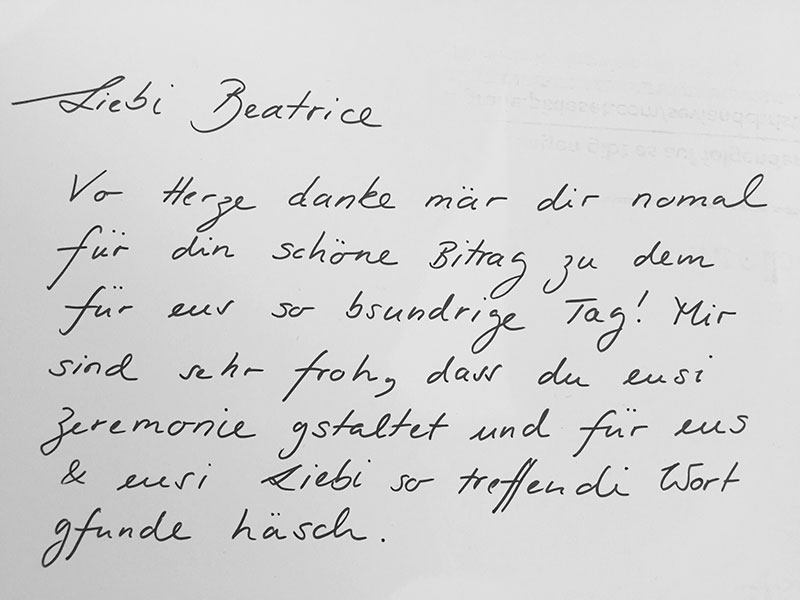 Liebi Beatrice
Vo Herze danke mär dir nomal
für din schöne Bitrag zu dem
für eus so bsundrige Tag! Mir
sind sehr froh, dass du eusi
Zeremonie gstaltet und für eus
& eusi Liebi so treffendi Wort
gfunde häsch.